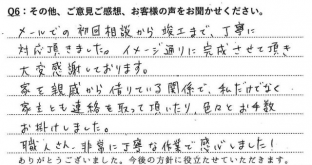 Q6：その他、ご意見ご感想、お客様の声をお聞かせください。
メールでの初回相談から竣工まで、丁寧に
対応頂きました。イメージ通りに完成させて頂き
大変感謝しております。
家を親戚から借りている関係で、私だけでなく
家主とも連絡を取って頂いたり、色々とお手数
お掛けしました。
職人さん、非常に丁寧な作業で感心しました！
ありがとうございました。今後の方針に役立たせていただきます。